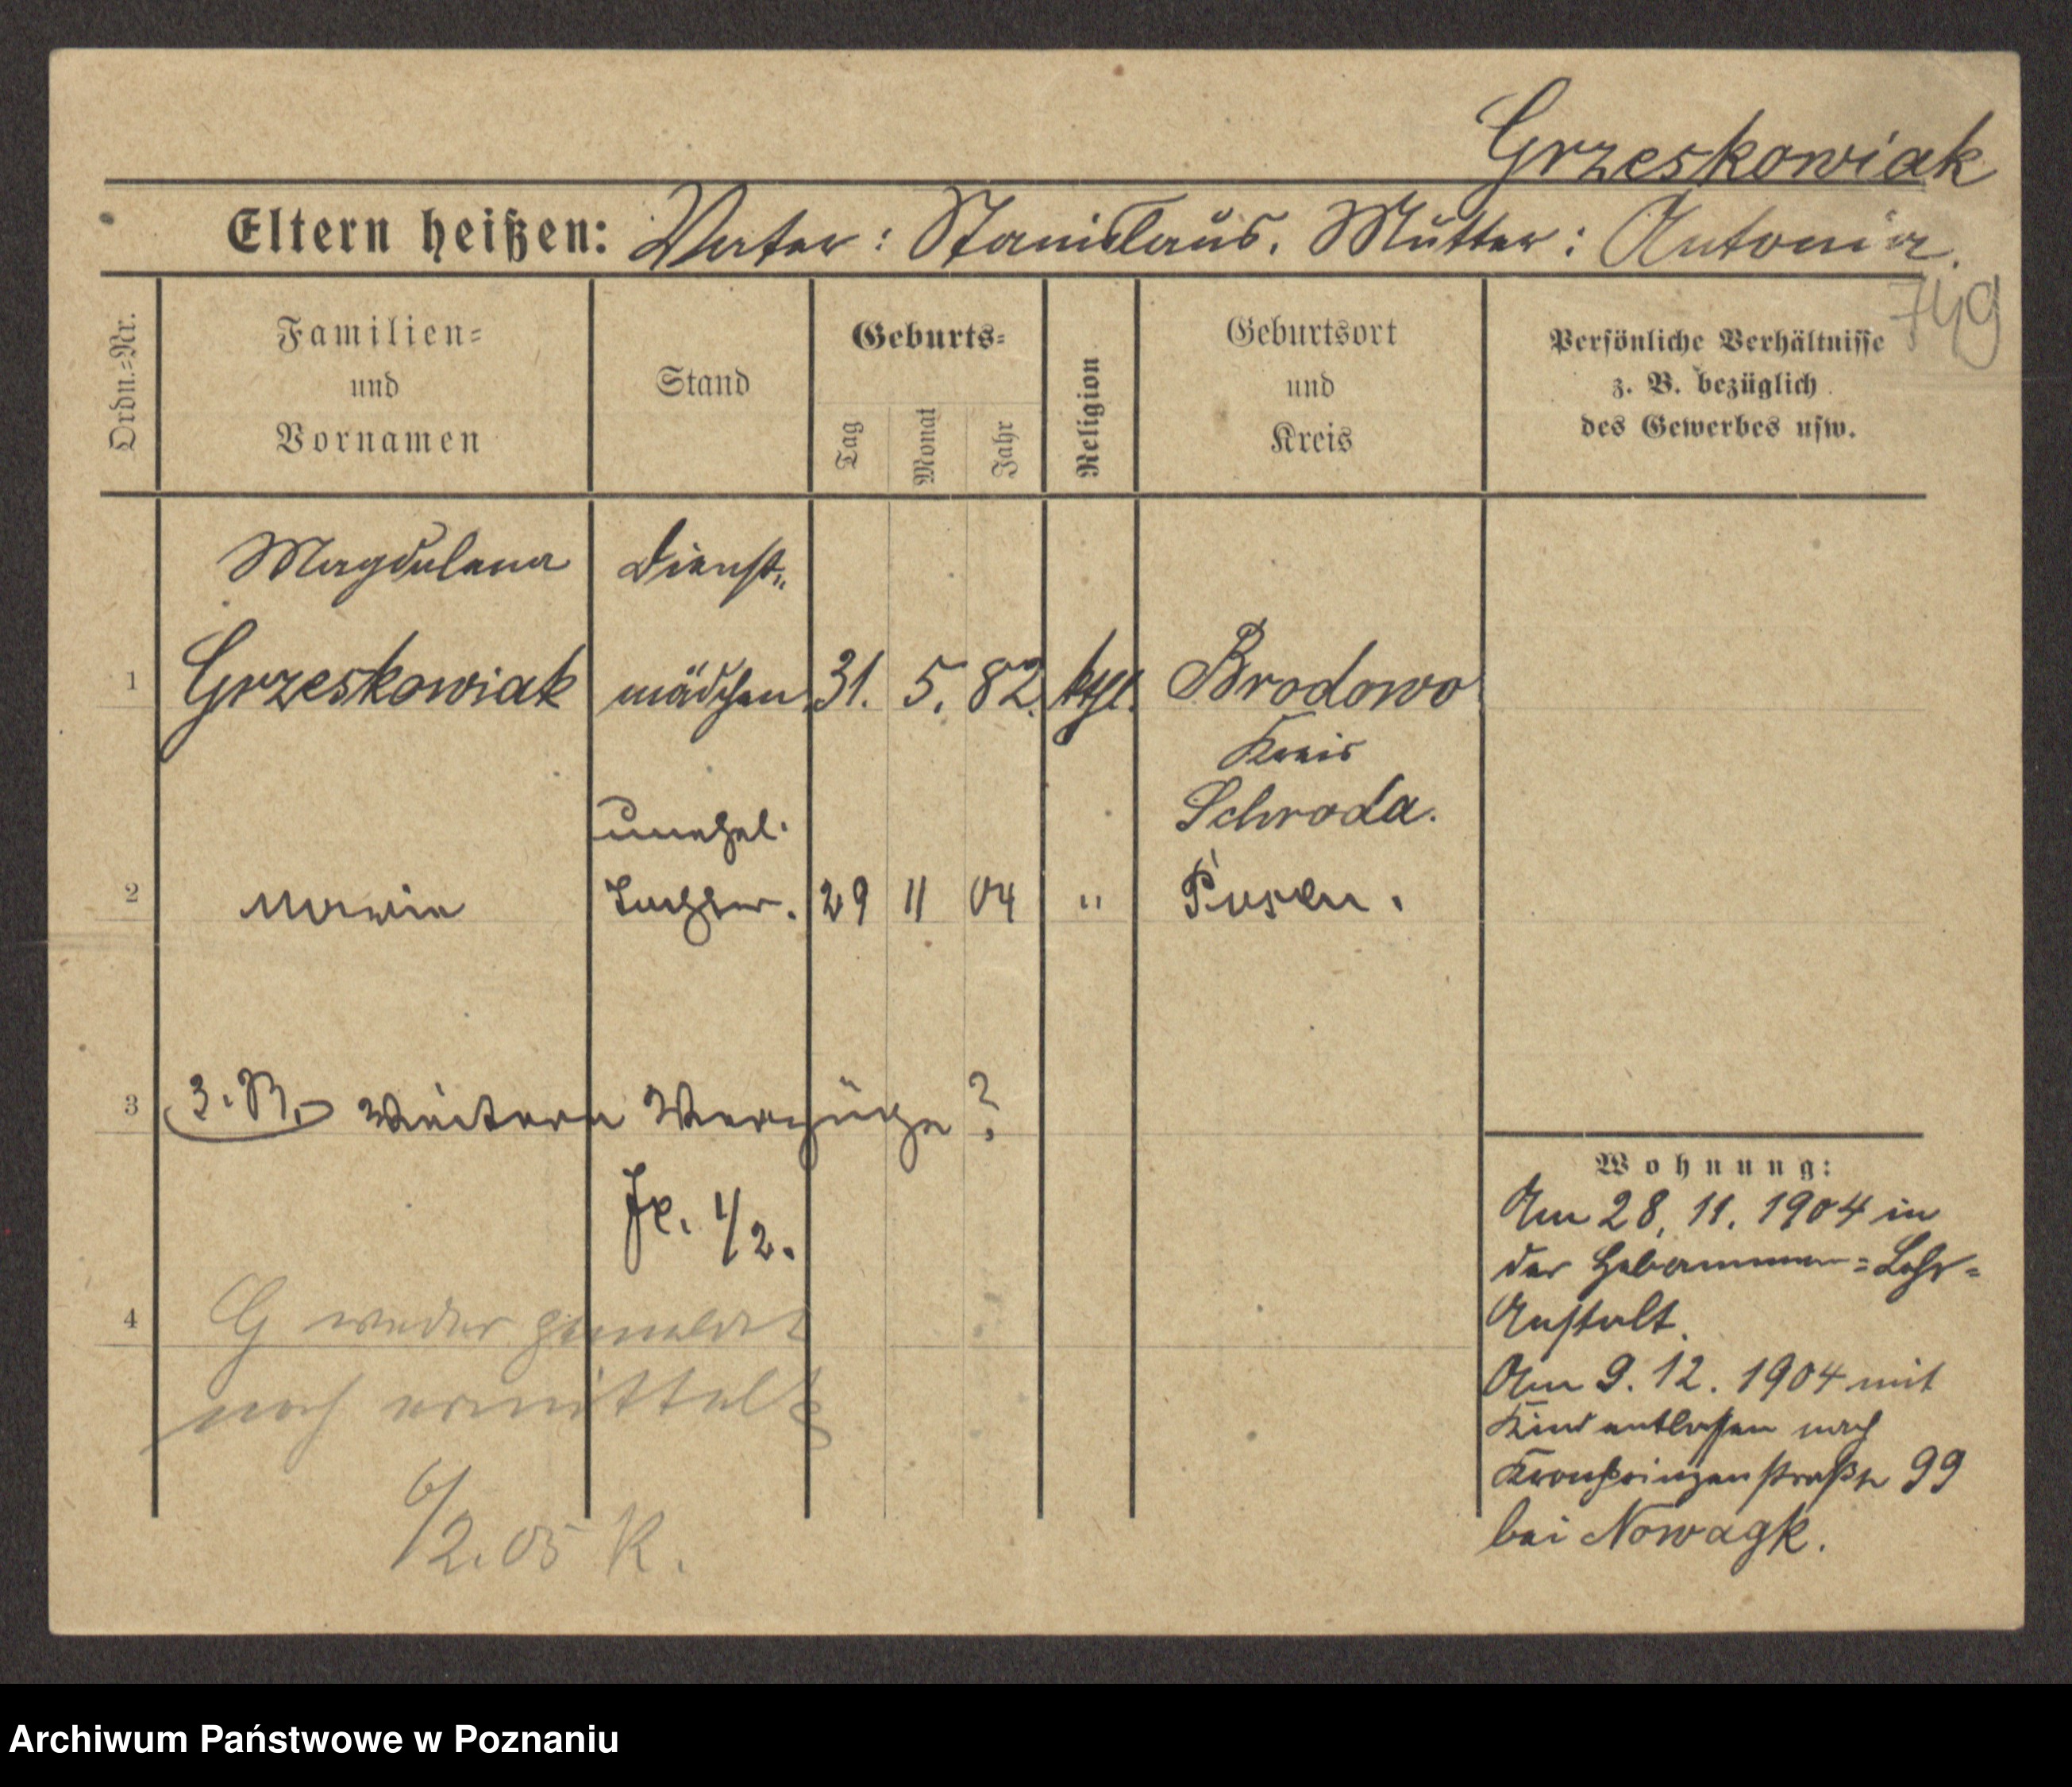 Grzeskowiak
Eltern heißen: Vater: Stanislaus. Mutter: Antonia.
Ordn.=Nr.
Familien=
und
Vornamen
Stand
Geburts=
Tag
Monat
Jahr
Religion
Geburtsort
und
Kreis
Persönliche Verhältnisse
z. B. bezüglich
des Gewerbes usw.
Magdalena Dienst=
1 Grzeskowiak mädchen 31. 5. 82. kthl. Brodowo
Kreis
Schroda.
unehel.
2 Maria Tochter. 29 11 04 " Posen.
3 z. B. weitere Verzüge?
1/2.
Wohnung:
Am 28. 11. 1904 in
der Hebammen=Lehr=
Anstalt.
Am 9. 12. 1904 mit
Kind entlassen nach
Kronprinzenstraße 99
bei Nowagk.
4 G weder gemeldet
noch ermittelt
6/2.05 R.
Archiwum Państwowe w Poznaniu